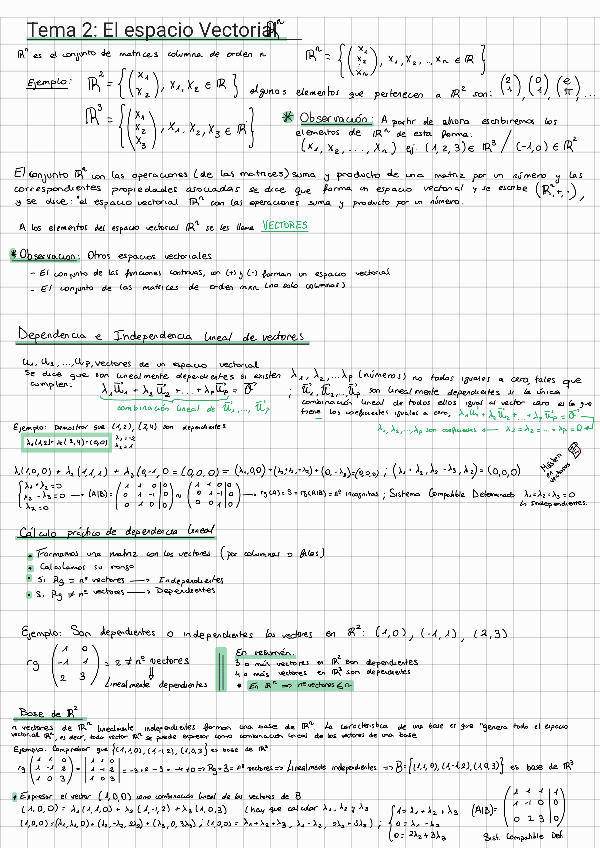 Tema 2: El espacio Vectorial ℝⁿ
ℝⁿ es el conjunto de matrices columna de orden n   ℝⁿ = {(x₁ x₂ ... xₙ), x₁, x₂, ..., xₙ ∈ ℝ}
Ejemplo: ℝ² = {(x₁ x₂), x₁, x₂ ∈ ℝ} algunos elementos que pertenecen a ℝ² son: (2 1), (0 1), (e π), ...
ℝ³ = {(x₁ x₂ x₃), x₁, x₂, x₃ ∈ ℝ}
* Observación: A partir de ahora escribiremos los
elementos de ℝⁿ de esta forma:
(x₁, x₂, ..., xₙ) ej: (1, 2, 3) ∈ ℝ³ / (-1, 0) ∈ ℝ²
El conjunto ℝⁿ con las operaciones (de las matrices) suma y producto de una matriz por un número y las
correspondientes propiedades asociadas se dice que forma un espacio vectorial y se escribe (ℝⁿ, +, ·),
y se dice: "el espacio vectorial ℝⁿ con las operaciones suma y producto por un número.
A los elementos del espacio vectorial ℝⁿ se les llama VECTORES
* Observacion: Otros espacios vectoriales
- El conjunto de las funciones continuas, con (+) y (·) forman un espacio vectorial
- El conjunto de las matrices de orden mxn (no solo columnas)
Dependencia e Independencia lineal de vectores
u₁, u₂, ..., uₚ, vectores de un espacio vectorial
Se dice que son linealmente dependientes si existen λ₁, λ₂, ... λₚ (números) no todos iguales a cero, tales que
cumplen: λ₁u₁ + λ₂u₂ + ... + λₚuₚ = 0 ; u₁, u₂, ..., uₚ son linealmente dependientes si la única
combinación lineal de u₁, ..., uₚ
combinación lineal de todos ellos igual al vector cero es la que
tiene los coeficientes iguales a cero, λ₁u₁ + λ₂u₂ + ... + λₚuₚ = 0
λ₁, λ₂, ..., λₚ son coeficientes → λ₁ = λ₂ = ... = λₚ = 0
Ejemplo: Demostrar que (1, 2), (2, 4) son dependientes
λ₁(1,2) + λ₂(2,4) = (0,0)
λ₁(1,0,0) + λ₂(1,1,1) + λ₃(0,-1,0) = (0,0,0) = (λ₁,0,0) + (λ₂,λ₂,λ₂) + (0,-λ₃,0) = (0,0,0) ; (λ₁+λ₂, λ₂-λ₃, λ₂) = (0,0,0)
{λ₁+λ₂=0 λ₂-λ₃=0 λ₂=0 → (A|B) = → rg(A) = 3 = rg(A|B) = nº incognitas ; Sistema Compatible Determinado λ₁=λ₂=λ₃=0
Independientes.
Cálculo práctico de dependencia lineal
• Formamos una matriz con los vectores (por columnas o filas)
• Calculamos su rango
• Si Rg = nº vectores → Independientes
• Si Rg ≠ nº vectores → Dependientes
Ejemplo: Son dependientes o independientes los vectores en ℝ²: (1,0), (-1,1), (2,3)
rg (1 0 / -1 1 / 2 3) = 2 ≠ nº vectores
⇓
Linealmente dependientes
En resumen:
3 o más vectores en ℝ² son dependientes
4 o más vectores en ℝ³ son dependientes
• En ℝⁿ ⇒ nº vectores ≤ n
Base de ℝⁿ
n vectores de ℝⁿ linealmente independientes forman una base de ℝⁿ. La caracteristica de una base es que "genera todo el espacio
vectorial ℝⁿ, es decir, todo vector ℝⁿ se puede expresar como combinación lineal de los vectores de una base
Ejemplo: Comprobar que {(1,1,0), (1,-1,2), (1,0,3)} es base de ℝ³
rg (1 1 0 / 1 -1 2 / 1 0 3) = -3+2-3 = -4 ≠ 0 ⇒ Rg = 3 = nº vectores ⇒ Linealmente independientes ⇒ B = {(1,1,0), (1,-1,2), (1,0,3)} es base de ℝ³
• Expresar el vector (1,0,0) como combinación lineal de los vectores de B
(1,0,0) = λ₁(1,1,0) + λ₂(1,-1,2) + λ₃(1,0,3) (hay que calcular λ₁, λ₂ y λ₃
(1,0,0) = (λ₁,λ₁,0) + (λ₂,-λ₂,2λ₂) + (λ₃,0,3λ₃) ; (1,0,0) = (λ₁+λ₂+λ₃, λ₁-λ₂, 2λ₂+3λ₃) ; {1=λ₁+λ₂+λ₃ 0=λ₁-λ₂ 0=2λ₂+3λ₃
(A|B) = (1 1 1 | 1 / 1 -1 0 | 0 / 0 2 3 | 0)
Sist. Compatible Det.